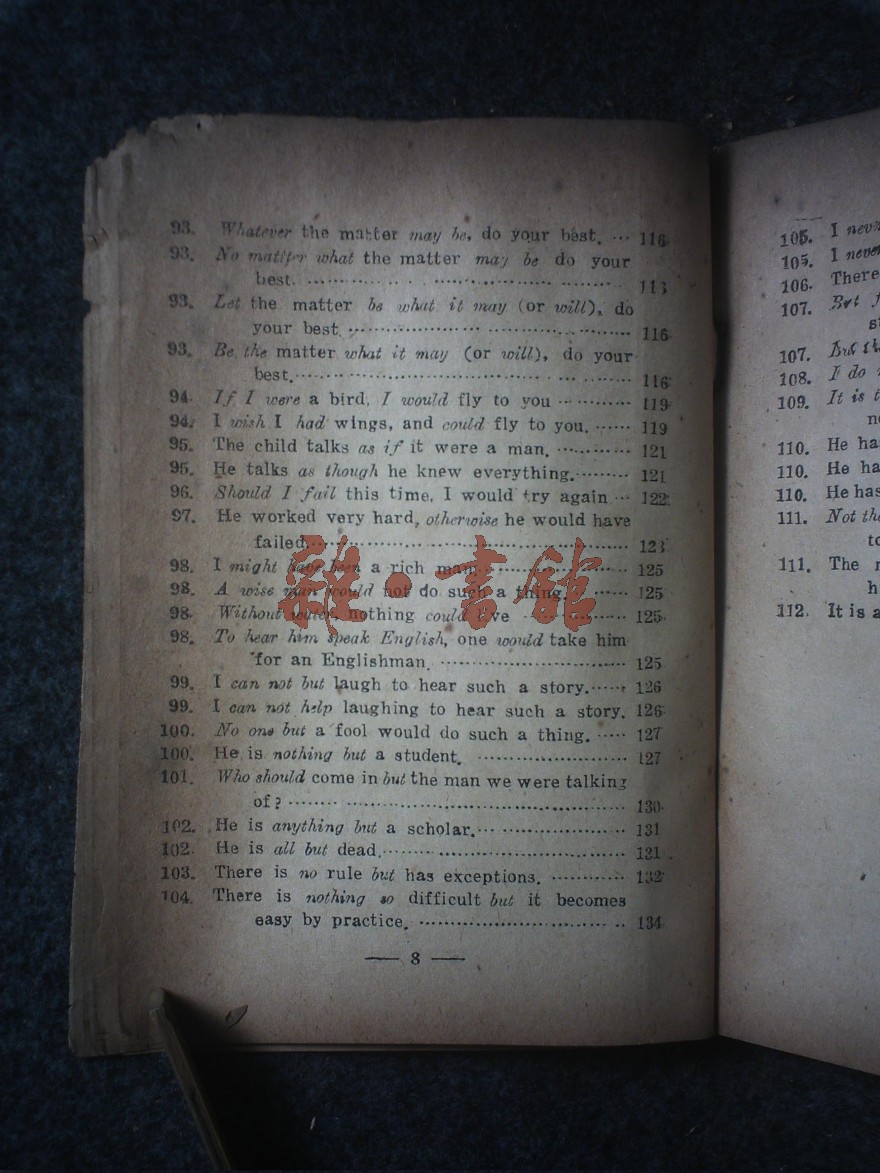 93. Whatever the matter may be, do your best. ... 116
93. No matter what the matter may be do your
best. ........................ 113
93. Let the matter be what it may (or will), do
your best ........................ 116
93. Be the matter what it may (or will), do your
best. ........................ 116
94. If I were a bird, I would fly to you ............ 119
94. I wish I had wings, and could fly to you. ...... 119
95. The child talks as if it were a man. ............ 121
95. He talks as though he knew everything. ......... 121
96. Should I fail this time, I would try again ... 122
97. He worked very hard, otherwise he would have
failed. ........................ 123
98. I might have been a rich man ............ 125
98. A wise man would not do such a thing. ...... 125
98. Without water, nothing could live ............ 125
98. To hear him speak English, one would take him
for an Englishman. ........................ 125
99. I can not but laugh to hear such a story. ...... 126
99. I can not help laughing to hear such a story. 126
100. No one but a fool would do such a thing. ...... 127
100. He is nothing but a student. .................. 127
101. Who should come in but the man we were talking
of? ........................ 130
102. He is anything but a scholar. .................. 131
102. He is all but dead. ........................ 131
103. There is no rule but has exceptions. ............ 132
104. There is nothing so difficult but it becomes
easy by practice. ........................ 134
— 8 —
105. I
105. I never
106. There
107. But
107. But
108. I do
109. It is
110. He ha
110. He ha
110. He has
111. Not the
to
111. The
h
112. It is a
雜·書館